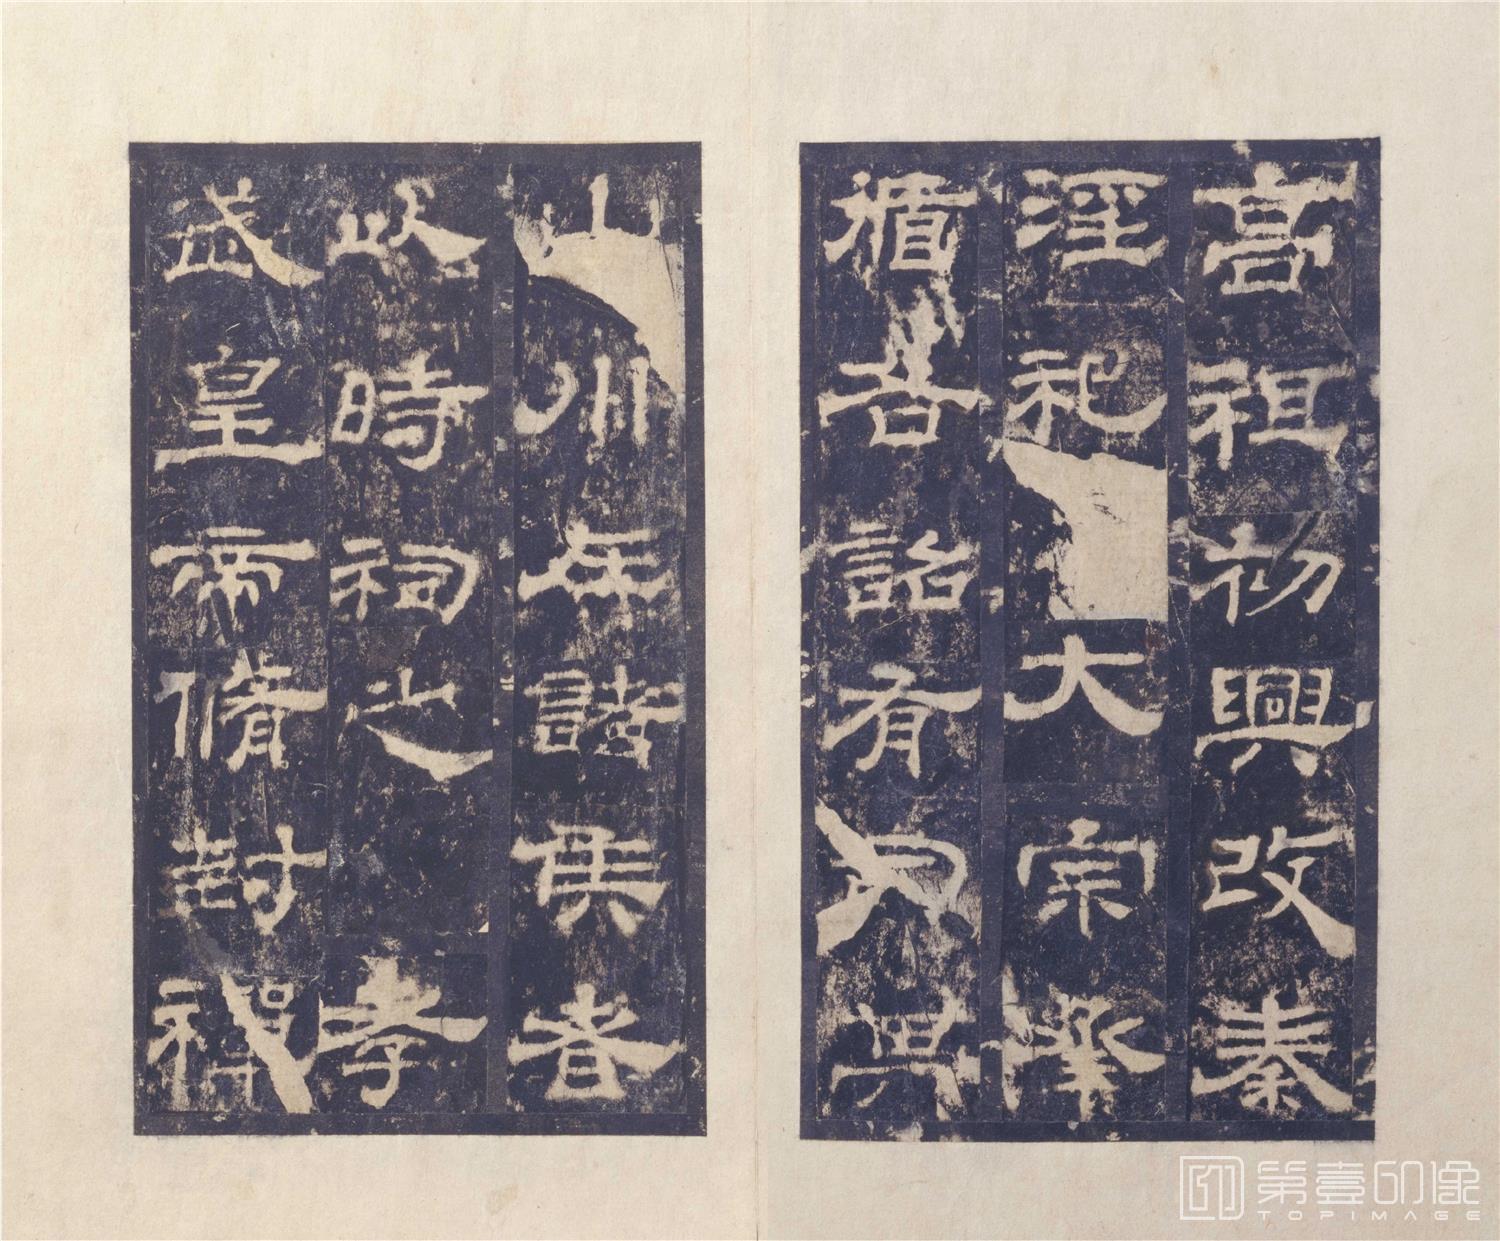 高祖初興改秦
淫祀大宗承
循各詔有司其
山川在諸侯者
以時祠之孝
武皇帝脩封禪
第壹印像
TOPIMAGE